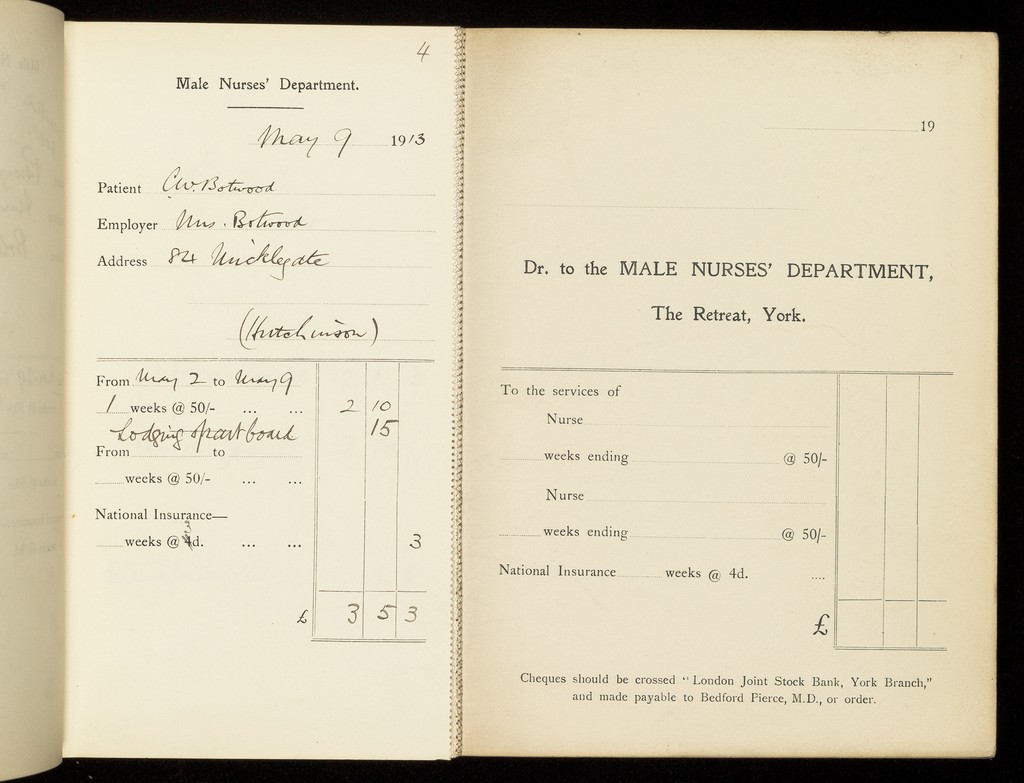 4
Male Nurses' Department.
May 9 1913
Patient C.W. Botwood
Employer Mrs. Botwood
Address 84 Micklegate
(Hutchinson)
From May 2 to May 9
1 weeks @ 50/- ... ... 2 10
Lodging & part board 15
From to
weeks @ 50/- ... ...
National Insurance—
3
weeks @ 4d. ... ... 3
£ 3 5 3
19
Dr. to the MALE NURSES' DEPARTMENT,
The Retreat, York.
To the services of
Nurse
weeks ending @ 50/-
Nurse
weeks ending @ 50/-
National Insurance weeks @ 4d. ....
£
Cheques should be crossed "London Joint Stock Bank, York Branch,"
and made payable to Bedford Pierce, M.D., or order.